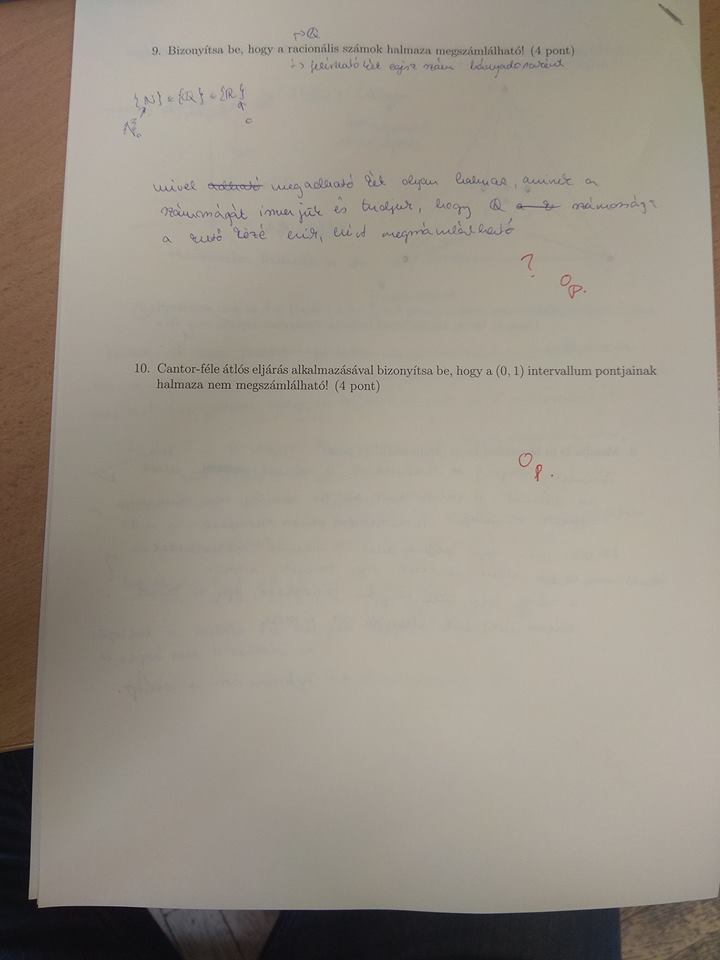 →ℚ
9. Bizonyítsa be, hogy a racionális számok halmaza megszámlálható! (4 pont)
↳ felírható két egész szám hányadosaként
{N} {Q} {R}
mivel megadható két olyan halmaz, aminek a
számosságát ismerjük és tudjuk, hogy ℚ számossága
a kettő közé esik, ezért megszámlálható
?
0p.
10. Cantor-féle átlós eljárás alkalmazásával bizonyítsa be, hogy a (0, 1) intervallum pontjainak
halmaza nem megszámlálható! (4 pont)
0p.